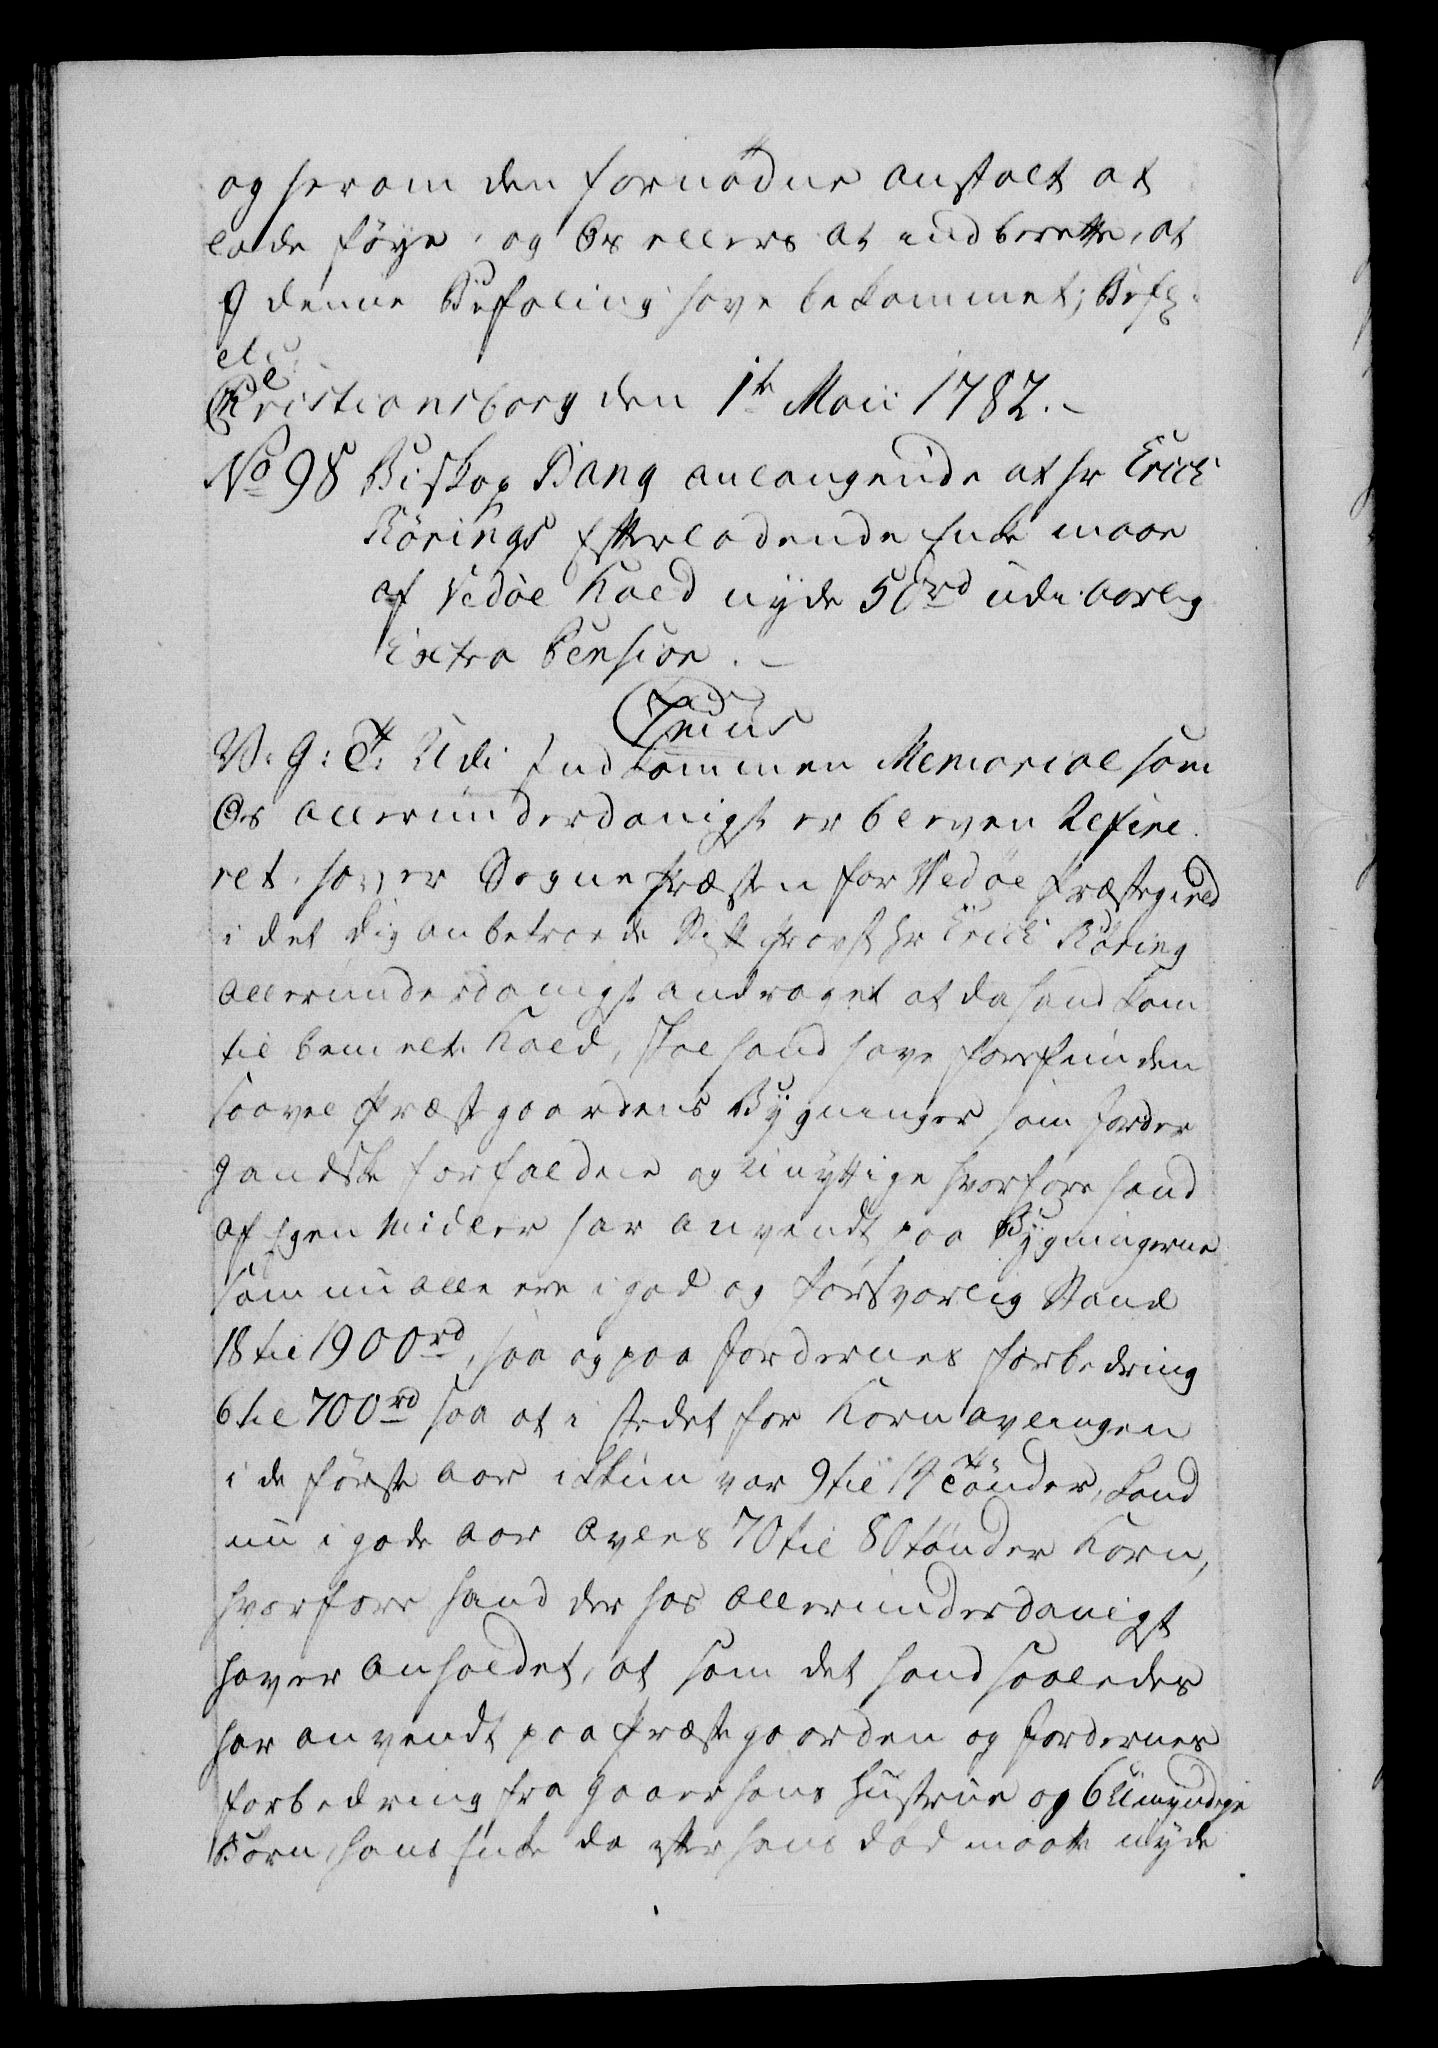 og herom den fornødne anstalt at
lade føye, og Os ellers at indberette, at
I denne Befaling have bekommet; Bef:
etc:
Christiansborg den 1te Maii 1782.
No 98 Biskop Bang anlangende at hr Erich
Rørings Efterladende Enke maae
af Vedøe Kald nyde 50rd udi aarlig
Extra Pension.
Fridericus
V: G: T: Udi Indkommen Memorial som
Os allerunderdanigst er bleven Refere-
ret, haver Sognepræsten for Wedøe Præstegield
i det dig anbetroede Stift Provst Hr Erich Røring
allerunderdanigst andraget at da hand kom
til bemelte Kald, skal hand have forefunden
saavel Præstegaardens Bygninger som Jorder
gandske forfaldene og unyttige hvorfore hand
af Egen Midler har anvendt paa Bygningerne
som nu alle ere i god og forsvarlig Stand
18 til 1900rd, saa og paa Jordernes forbedring
6 til 700rd saa at i stedet for Korn avlingen
i de første Aar ikkun var 9 til 14 Tønder, kand
nu i gode Aar Avles 70 til 80 tønder Korn,
hvorfore hand derhos allerunderdanigst
haver Anholdet, at som det hand saaledes
har anvendt paa Præstegaarden og Jordernes
forbedring fragaaer hans Hustrue og 6 Umyndige
Børn, hans Enke da efter hans død maatte nyde